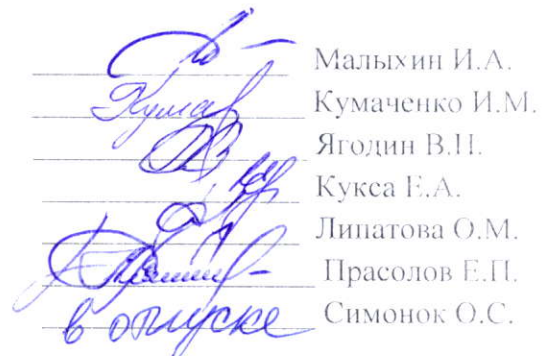 Малыхин И.А.
Кумаченко И.М.
Ягодин В.П.
Кукса Е.А.
Липатова О.М.
Прасолов Е.П.
в отпуске Симонок О.С.